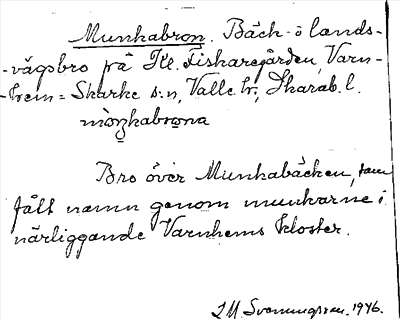 Munkabron. Bäck- o lands-
-vägsbro på Kl. Fiskaregården, Varn-
-hem = Skarke s:n, Valle hr, Skarab. l.
mòŋkabrɷna
Bro över Munkabäcken, som
fått namn genom munkarne i
närliggande Varnhems kloster.
Svenungsson. 1946.